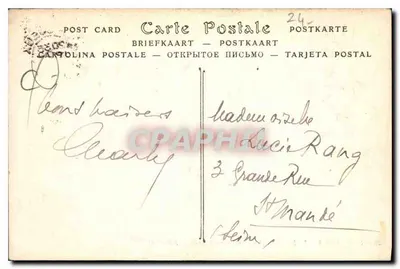 24-
POST CARD Carte Postale POSTKARTE
BRIEFKAART — POSTKAART
CARTOLINA POSTALE — ОТКРЫТОЕ ПИСЬМО — TARJETA POSTAL
bons baisers
Charly
Mademoiselle
Lucie Rang
3 Grande Rue
St Mandé
(Seine)
CPARAMA